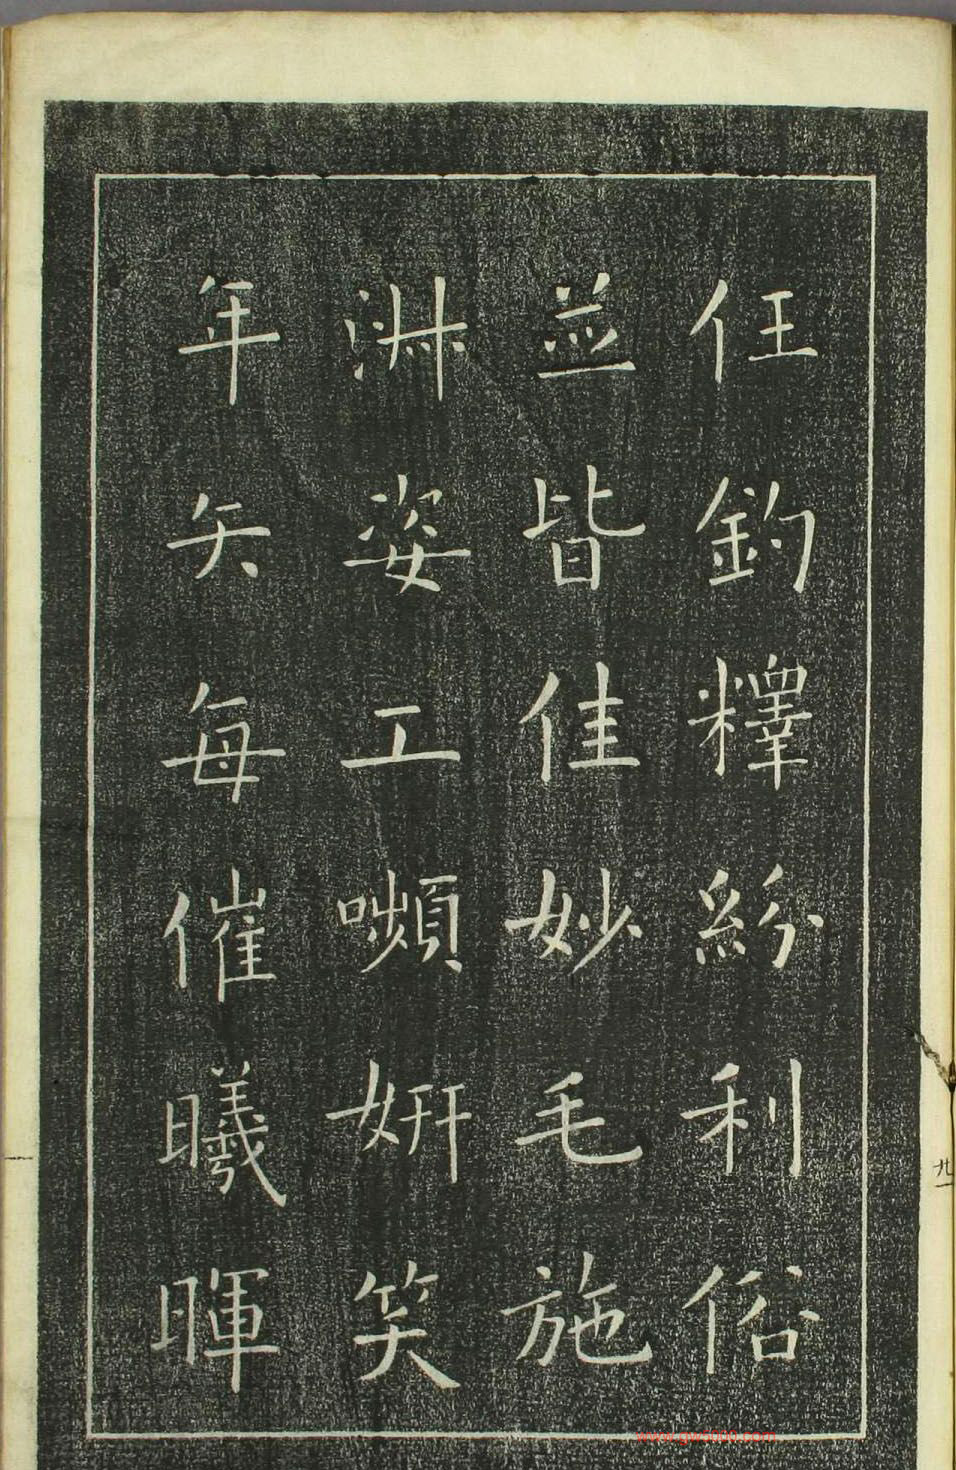 任釣釋紛利俗
並皆佳妙毛施
淑姿工嚬妍笑
年矢每催曦暉